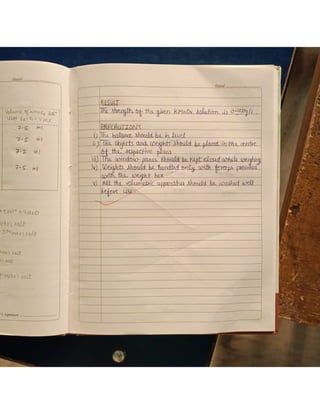 Volume of KMnO4
used
7.5 ml
7.5 ml
7.2 ml
7.5 ml
RESULT
The strength of the given KMnO4 solution is
PRECAUTIONS
i) The balance should be in level
ii) The objects and weights should be placed in the centre
of the respective pans
iii) The window panes should be kept closed while weighing
iv) Weights should be handled only with forcep provided
with the weight box
v) All the volumetric apparatus should be washed well
before use